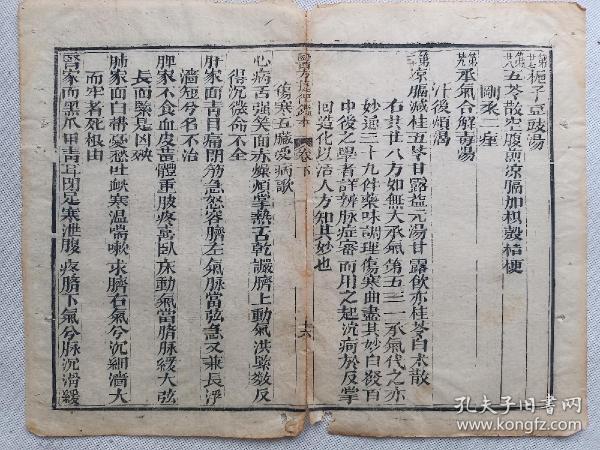 第廿七 梔子豆豉湯
第廿八 五苓散空腹煎涼膈加枳殼桔梗
剛柔二痙
第廿九 承氣合解毒湯
汗後煩渴
涼膈減桂五苓甘露益元湯甘露飲亦桂苓白朮散
右共廿八方如無大承氣第五三一承氣代之亦
妙逓三十九件藥味調理傷寒曲盡其妙自發百
中後之學者詳辨脉症審而用之起沉疴於反掌
回造化以活人方知其妙也
卷下
十六
傷寒五臟受病歌
心病舌強笑面赤燥煩掌熱舌乾讝臍上動氣洪緊數反
得沉微命不全
肝家面青目痛閉筋急怒容臍左氣脉當弦急又兼長浮
濇短兮名不治
脾家不食血皮黃體重肢疼喜臥床動氣當臍脉緩大弦
長而緊是凶殃
肺家面白構憂愁吐衄寒溫喘嗽求臍右氣兮沉細濇大
而牢者死根由
腎家面黑爪甲青耳閉足寒泄腹疼臍下氣兮脉沉滑緩
孔夫子旧书网
www.kongfz.com